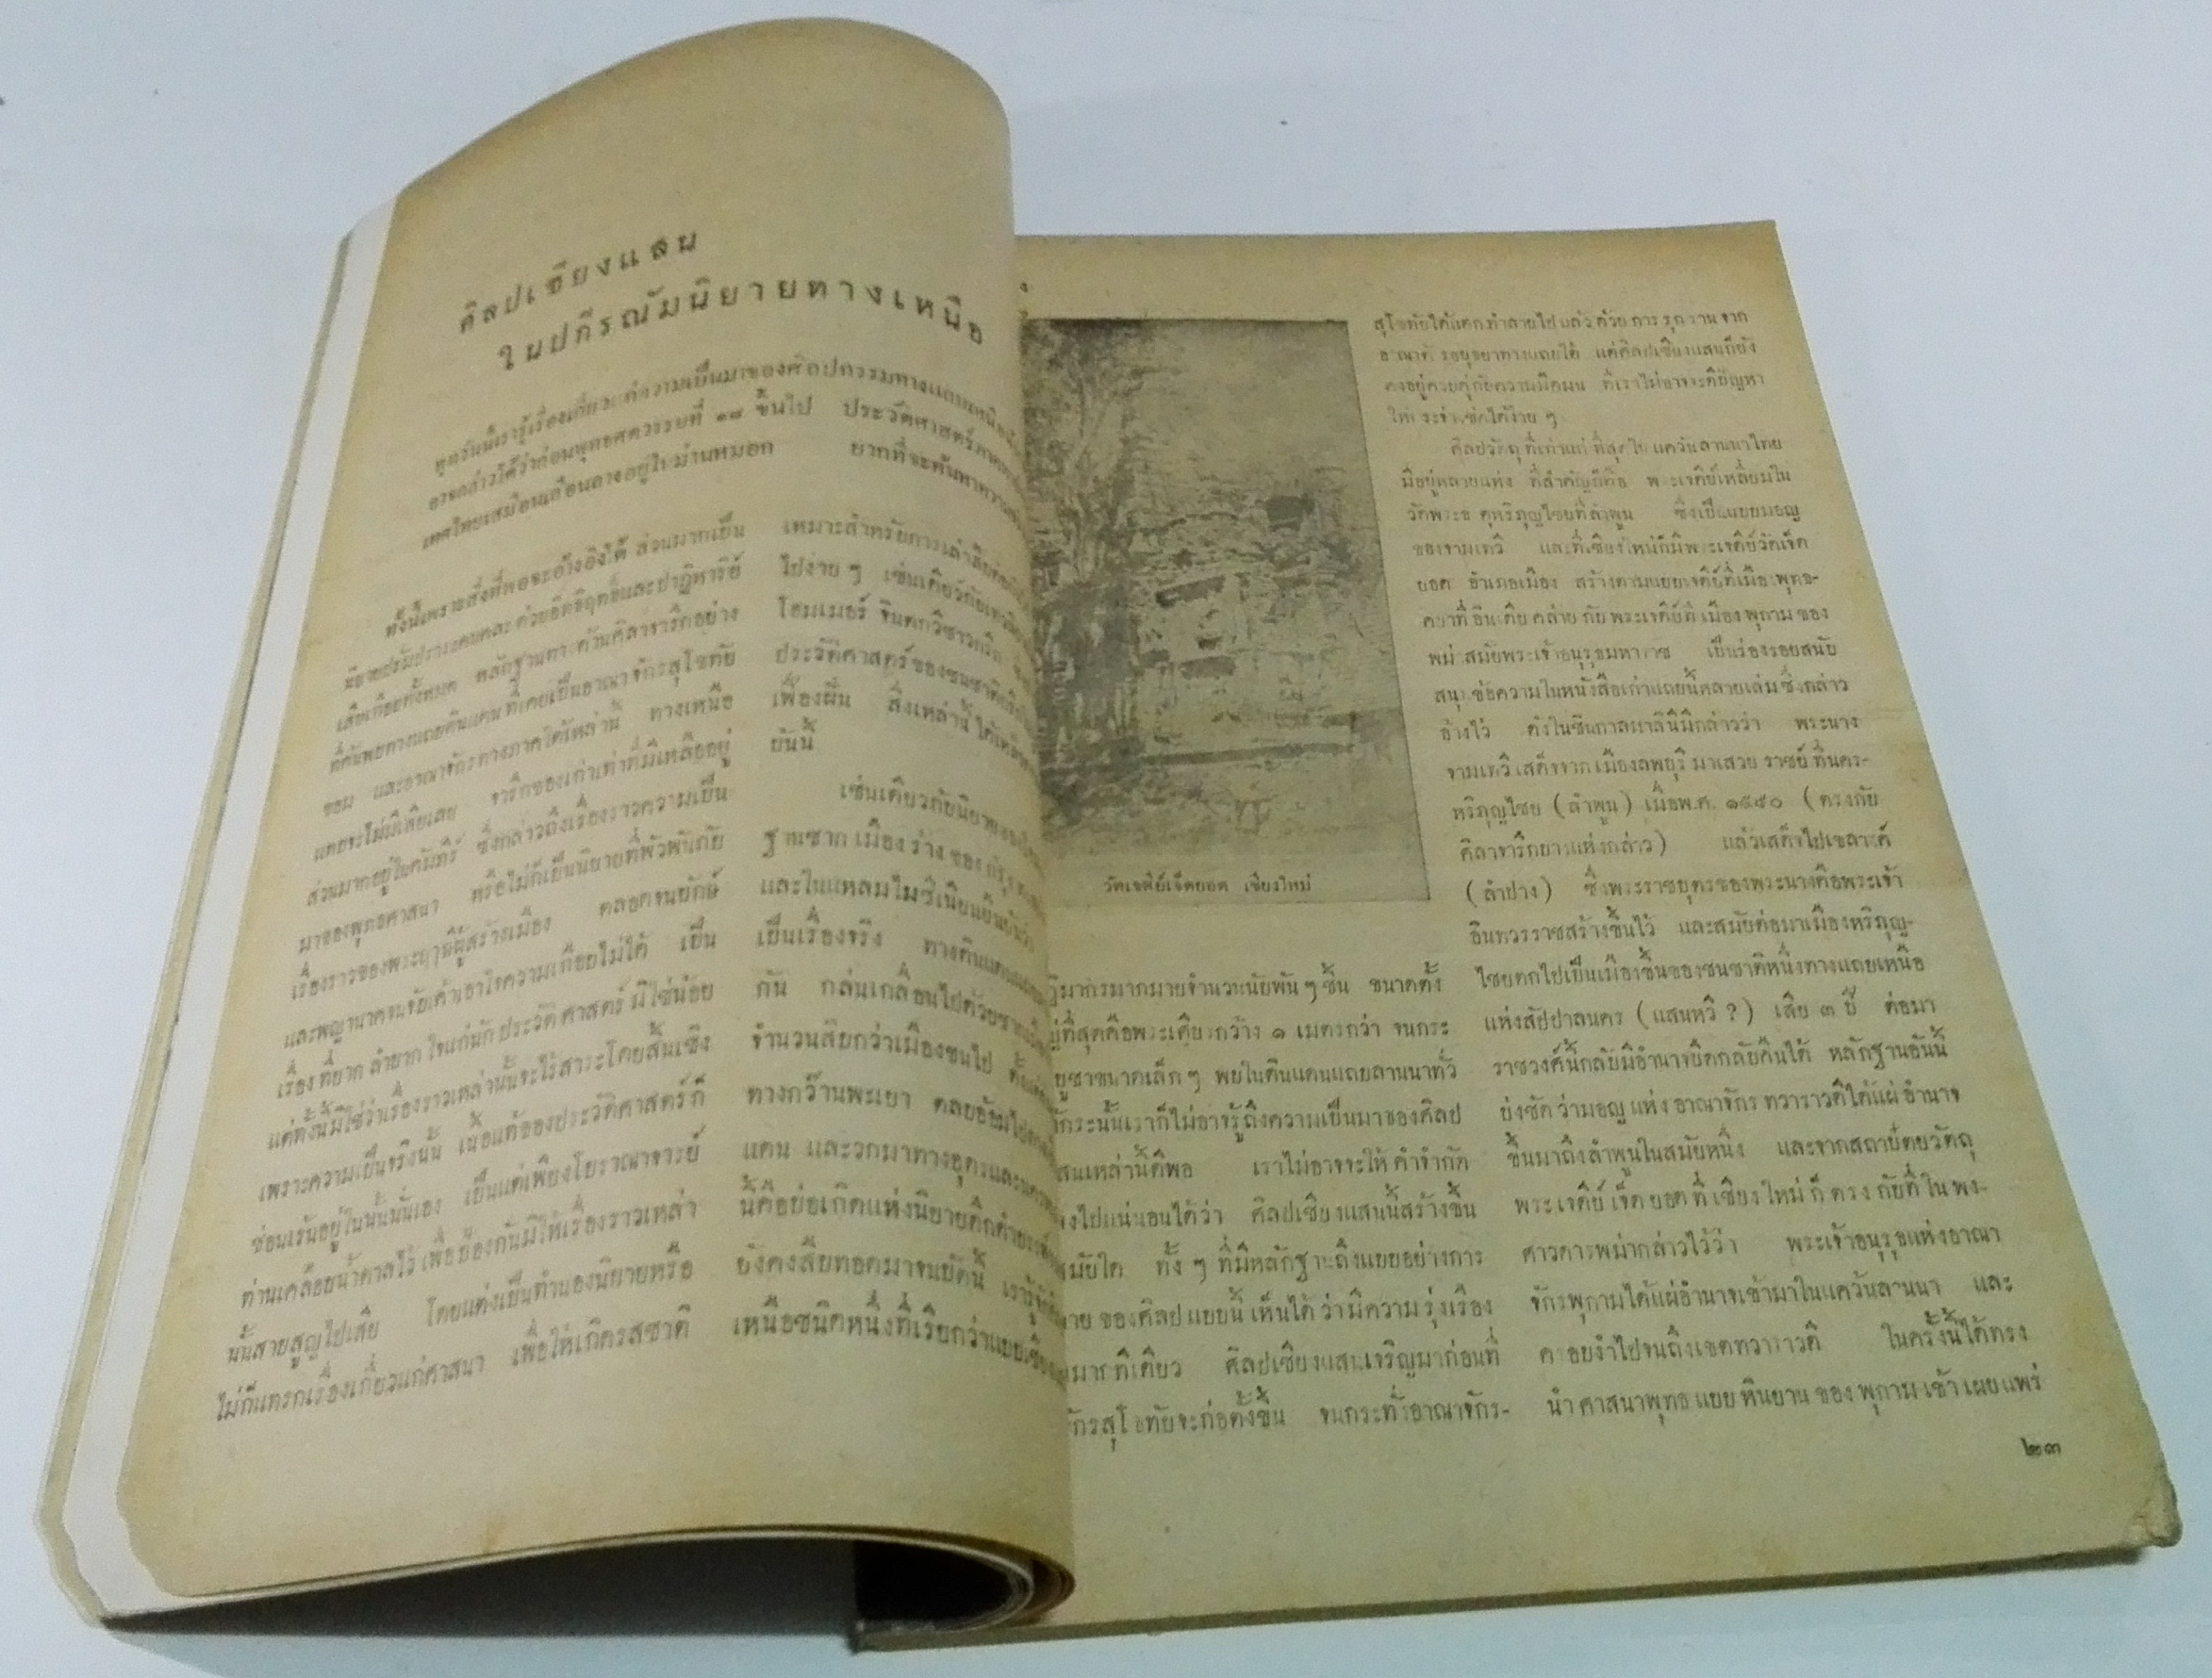 ศิลปเชียงแสน
ในปกีรณัมนิยายทางเหนือ
ทุกวันนี้เรารู้เรื่องเกี่ยวแก่ความเป็นมาของศิลปกรรมทางแถบเหนือ
อาจกล่าวได้ว่าก่อนพุทธศตวรรษที่ ๑๘ ขึ้นไป ประวัติศาสตร์
เทศไทยเสมือนเลือนลางอยู่ในม่านหมอก ยากที่จะค้นหาความ
ทั้งนี้เพราะสิ่งที่พอจะอ้างอิงได้ ส่วนมากเป็น
นิยายปรัมปราเจือปนคละด้วยอิทธิฤทธิ์และปาฏิหาริย์
เสียเกือบทั้งหมด หลักฐานทางด้านศิลาจารึกอย่าง
ที่ค้นพบทางแถบดินแดนที่เคยเป็นอาณาจักรสุโขทัย
ขอม และอาณาจักรทางภาคใต้เหล่านี้ ทางเหนือ
แทบจะไม่มีเสียเลย จารึกของเก่าเท่าที่มีเหลืออยู่
ส่วนมากอยู่ในคัมภีร์ ซึ่งกล่าวถึงเรื่องราวความเป็น
มาของพุทธศาสนา หรือไม่ก็เป็นนิยายที่พัวพันกับ
เรื่องราวของพระฤาษีผู้สร้างเมือง ตลอดจนยักษ์
และพญานาคจนจับเค้าเอาใจความเกือบไม่ได้ เป็น
เรื่องที่ยากลำบากใจแก่นักประวัติศาสตร์ มิใช่น้อย
แต่ทั้งนี้มิใช่ว่าเรื่องราวเหล่านั้นจะไร้สาระโดยสิ้นเชิง
เพราะความเป็นจริงนั้น เนื้อแท้ของประวัติศาสตร์ก็
ซ่อนเร้นอยู่ในนั้นนั่นเอง เป็นแต่เพียงโบราณาจารย์
ท่านเคลือบน้ำตาลไว้ เพื่อป้องกันมิให้เรื่องราวเหล่า
นั้นสาบสูญไปเสีย โดยแต่งเป็นทำนองนิยายหรือ
ไม่ก็แทรกเรื่องเกี่ยวแก่ศาสนา เพื่อให้เกิดรสชาติ
เหมาะสำหรับการเล่าสืบต่อกัน
ไปง่าย ๆ เช่นเดียวกับ
โฮมเมอร์ จินตกวีชาวกรีก
ประวัติศาสตร์ของชนชาติกรีก
เฟื่องฝัน สิ่งเหล่านี้ได้
ยันนี้
เช่นเดียวกับนิยาย
ฐานซากเมืองร้างของกรุง
และในแหลมไมซีเนียนยืนยันว่า
เป็นเรื่องจริง ทางดินแดน
กัน กล่นเกลื่อนไปด้วยซาก
จำนวนสิบกว่าเมืองขนไป ตั้งแต่
ทางกว๊านพะเยา ตลบอ้อมไป
แดน และวกมาทางอุตรและ
นี้คือบ่อเกิดแห่งนิยายดึกดำบรรพ์
ยังคงสืบทอดมาจนบัดนี้ เรารู้จัก
เหนือชนิดหนึ่งที่เรียกว่าแบบเชียง
วัดเจดีย์เจ็ดยอด เชียงใหม่
ฐิมากรมากมายจำนวนนับพัน ๆ ชิ้น ขนาดตั้ง
ญ่ที่สุดคือพระเศียรกว้าง ๑ เมตรกว่า จนกระ
บูชาขนาดเล็ก ๆ พบในดินแดนแถบลานนาทั่ว
กระนั้นเราก็ไม่อาจรู้ถึงความเป็นมาของศิลป
สนเหล่านี้ดีพอ เราไม่อาจจะให้คำจำกัด
งไปแน่นอนได้ว่า ศิลปเชียงแสนนี้สร้างขึ้น
สมัยใด ทั้ง ๆ ที่มีหลักฐานถึงแบบอย่างการ
าย ของศิลปแบบนี้ เห็นได้ว่ามีความรุ่งเรือง
มากทีเดียว ศิลปเชียงแสนเจริญมาก่อนที่
กรสุโขทัยจะก่อตั้งขึ้น จนกระทั่งอาณาจักร-
สุโขทัยได้แตกทำลายไปแล้วด้วยการรุกรานจาก
อาณาจักรอยุธยาทางแถบใต้ แต่ศิลปเชียงแสนก็ยัง
คงอยู่ควบคู่กับความมืดมน ที่เราไม่อาจจะตีปัญหา
ให้กระจ่างชัดได้ง่าย ๆ
ศิลปวัตถุที่เก่าแก่ที่สุดในแคว้นลานนาไทย
มีอยู่หลายแห่ง ที่สำคัญก็คือ พระเจดีย์เหลี่ยมใน
วัดพระธาตุหริภุญไชยที่ลำพูน ซึ่งเป็นแบบมอญ
ของจามเทวี และที่เชียงใหม่ก็มีพระเจดีย์วัดเจ็ด
ยอด อำเภอเมือง สร้างตามแบบเจดีย์ที่เมืองพุทธ-
คยาที่อินเดีย คล้ายกับพระเจดีย์ที่เมืองพุกามของ
พม่าสมัยพระเจ้าอนุรุธมหาราช เป็นร่องรอยสนับ
สนุนข้อความในหนังสือเก่าแถบนี้หลายเล่มซึ่งกล่าว
อ้างไว้ ดังในชินกาลมาลินีมีกล่าวว่า พระนาง
จามเทวี เสด็จจากเมืองลพบุรี มาเสวยราชย์ที่นคร-
หริภุญไชย (ลำพูน) เมื่อ พ.ศ. ๑๕๕๐ (ตรงกับ
ศิลาจารึกบางแห่งกล่าว) แล้วเสด็จไปเขลางค์
(ลำปาง) ซึ่งพระราชบุตรของพระนางคือพระเจ้า
อินทวรราชสร้างขึ้นไว้ และสมัยต่อมาเมืองหริภุญ-
ไชยตกไปเป็นเมืองขึ้นของชนชาติหนึ่งทางแถบเหนือ
แห่งสัปปาลนคร (แสนหวี ?) เสีย ๓ ปี ต่อมา
ราชวงศ์นี้กลับมีอำนาจยึดกลับคืนได้ หลักฐานอันนี้
บ่งชัดว่ามอญแห่งอาณาจักรทวาราวดีได้แผ่อำนาจ
ขึ้นมาถึงลำพูนในสมัยหนึ่ง และจากสถาปัตยวัตถุ
พระเจดีย์เจ็ดยอดที่เชียงใหม่ก็ตรงกับที่ในพง-
ศาวดารพม่ากล่าวไว้ว่า พระเจ้าอนุรุธแห่งอาณา
จักรพุกามได้แผ่อำนาจเข้ามาในแคว้นลานนา และ
ครอบงำไปจนถึงเขตทวาราวดี ในครั้งนี้ได้ทรง
นำศาสนาพุทธแบบหินยานของพุกามเข้าเผยแพร่
๒๓